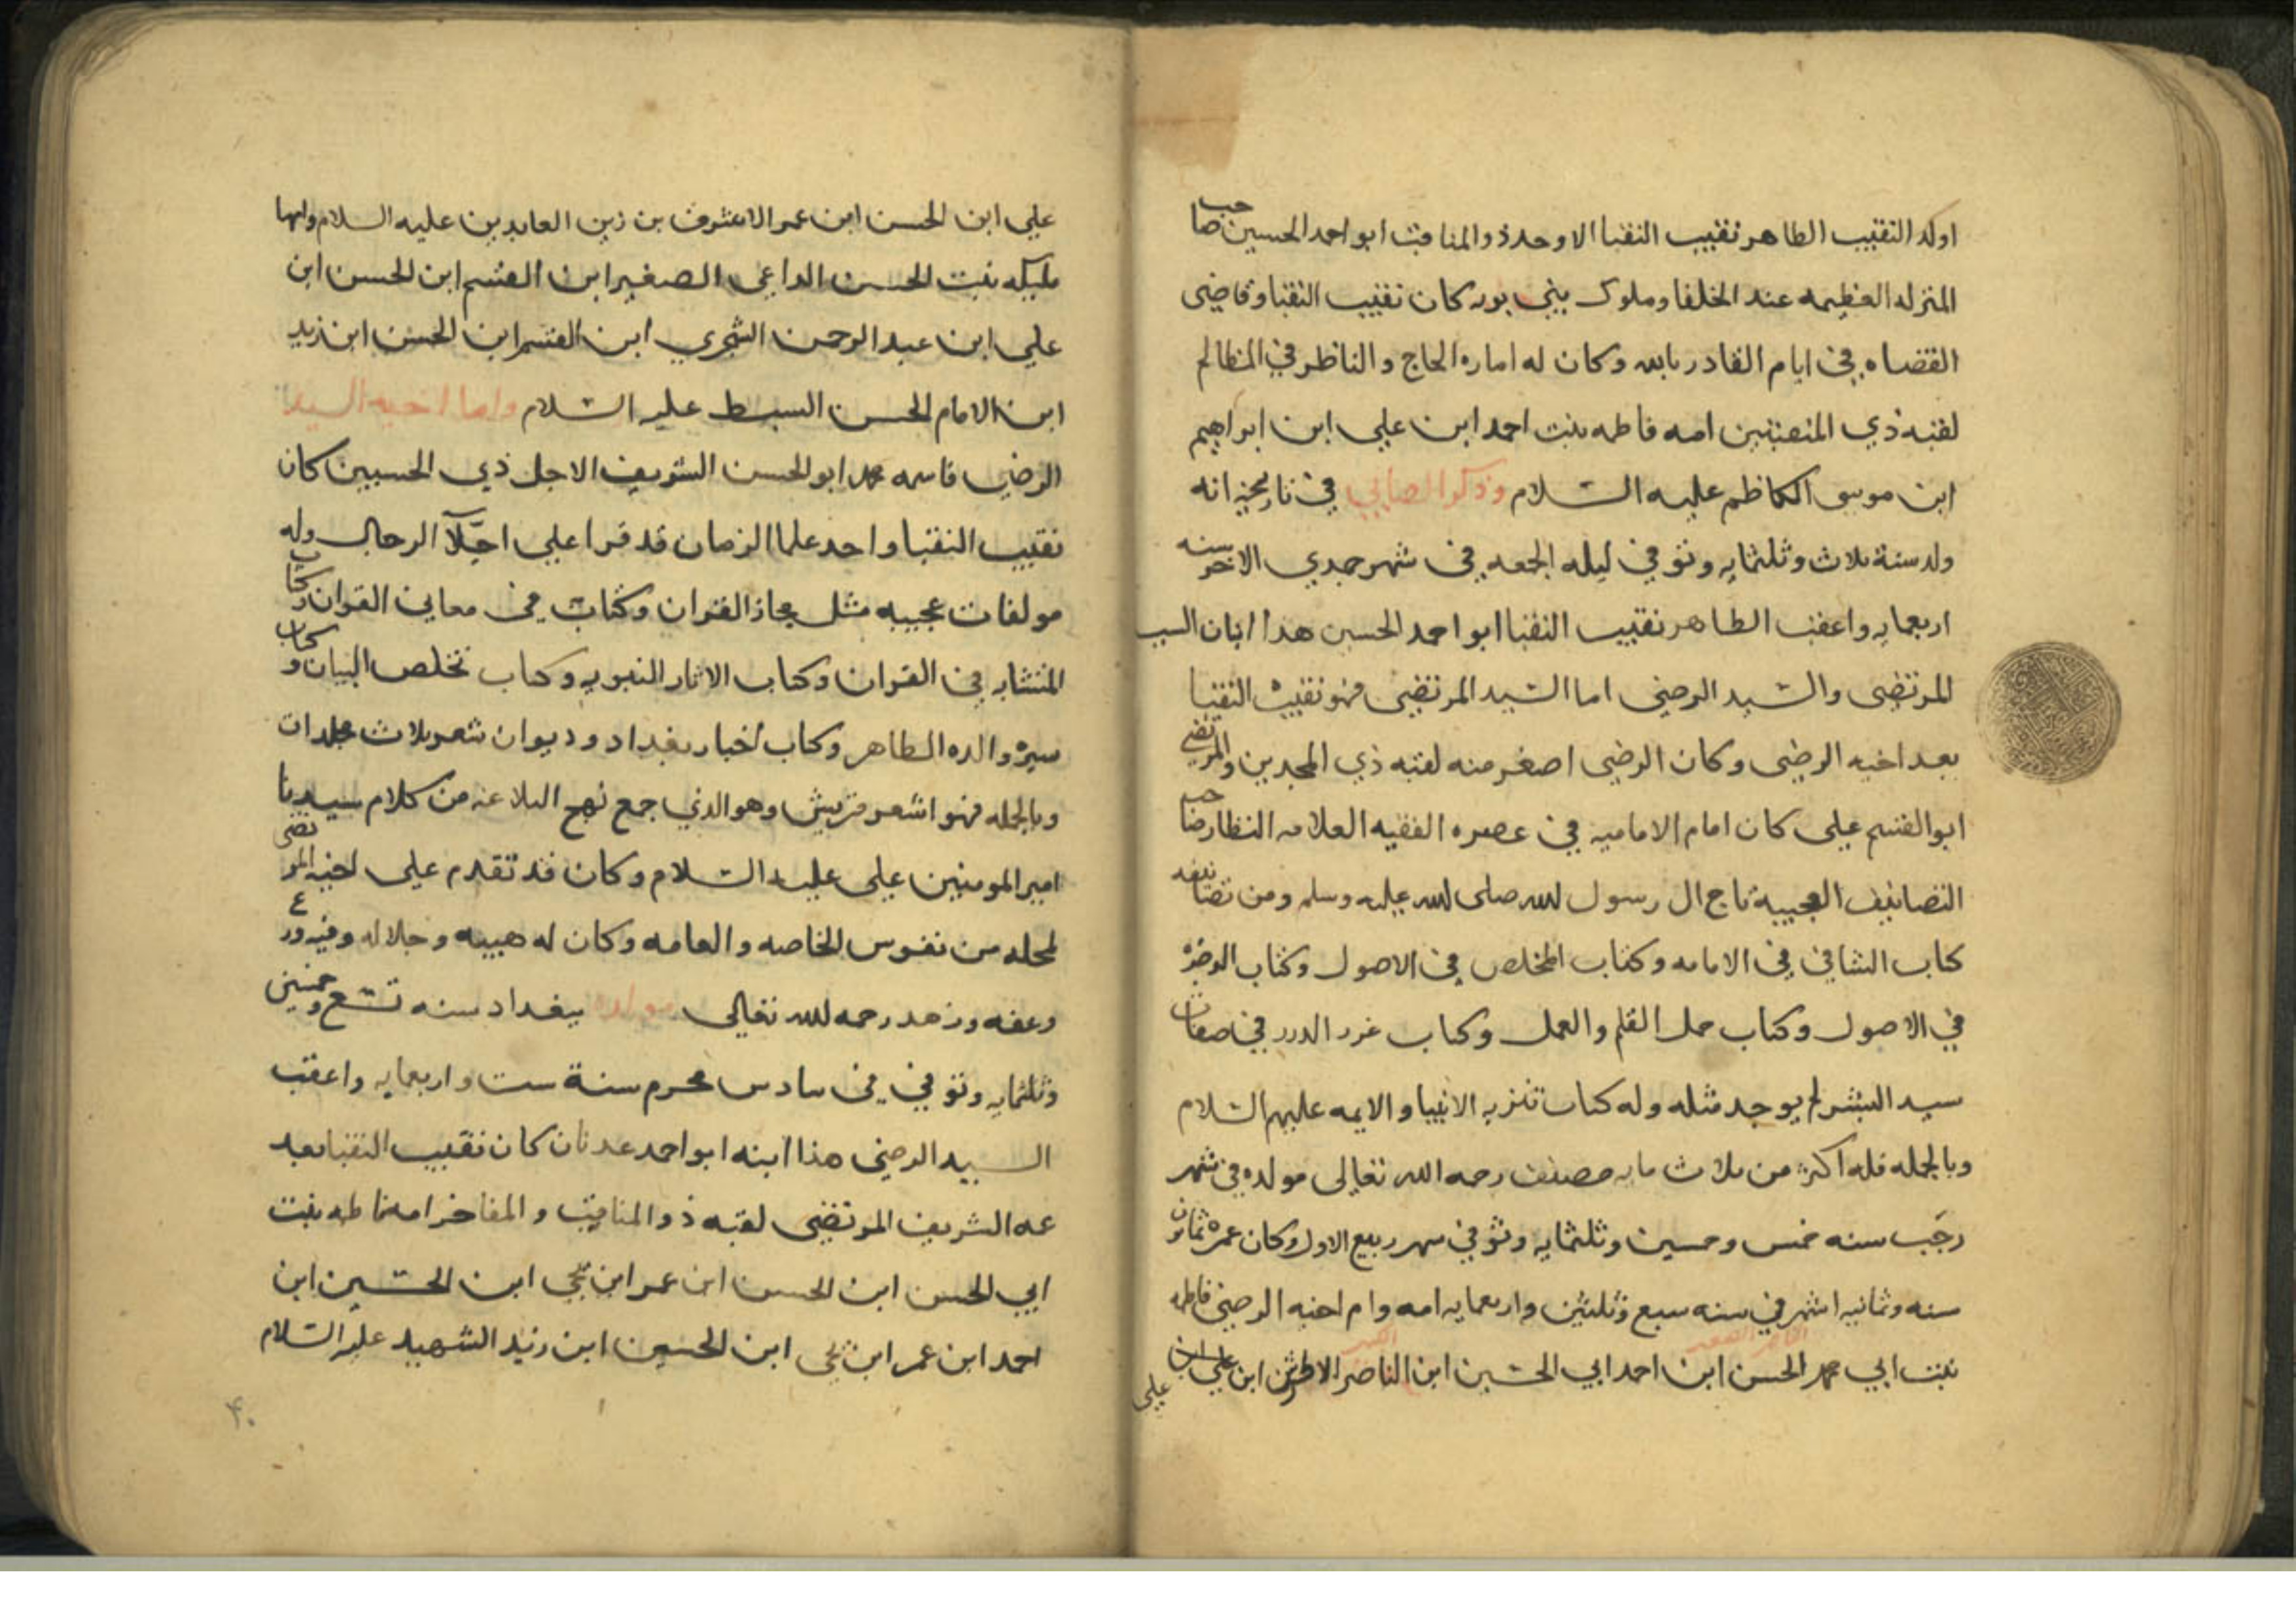 اولد النقيب الطاهر نقيب النقبا الاوحد ذو المناقب ابو احمد الحسين صاحب
المنزله العظيمه عند الخلفا وملوك بني بويه كان نقيب النقبا وقاضي
القضاه في ايام القادر بالله وكان له اماره الحاج والناظر في المظالم
لقبه ذي المنقبتين امه فاطمه بنت احمد ابن علي ابن ابراهيم
ابن موسى الكاظم عليه السلام وذكر الصابي في تاريخه انه
ولد سنة ثلاث وثلثمايه وتوفي ليله الجمعه في شهر جمدي الاخر سنه
اربعمايه واعقب الطاهر نقيب النقبا ابو احمد الحسين هذا ابنان السيد
المرتضى والسيد الرضي اما السيد المرتضى فهو نقيب النقبا
بعد اخيه الرضي وكان الرضي اصغر منه لقبه ذي المجدين والمرتضى
ابو القسم علي كان امام الاماميه في عصره الفقيه العلامه النظار صاحب
التصانيف العجيبة تاج ال رسول الله صلى الله عليه وسلم ومن تصانيفه
كتاب الشافي في الامامه وكتاب الملخص في الاصول وكتاب الذخيرة
في الاصول وكتاب جمل القلم والعمل وكتاب غرر الدرر في صفات
سيد البشر لم يوجد مثله وله كتاب تنزيه الانبيا والايمه عليهم السلام
وبالجمله فله اكثر من ثلاث مايه مصنف رحمه الله تعالى مولده في شهر
رجب سنه خمس وخمسين وثلثمايه وتوفي شهر ربيع الاول وكان عمره ثمانون
سنه وثمانيه اشهر في سنه سبع وثلثين واربعمايه امه وام اخيه الرضي فاطمه
بنت ابي محمد الحسن ابن احمد ابي الحسين ابن الناصر الاطرش ابن علي ابن
علي ابن الحسن ابن عمر الاشرف بن زين العابدين عليه السلام وامها
مليكه بنت الحسن الداعي الصغير ابن القسم ابن الحسن ابن
علي ابن عبد الرحمن الشجري ابن القسم ابن الحسن ابن زيد
ابن الامام الحسن السبط عليه السلام واما اخيه السيد
الرضي فاسمه محمد ابو الحسن الشريف الاجل ذي الحسبين كان
نقيب النقبا واحد علما الزمان قد قرا علي اجلآ الرجال وله
مولفات عجيبه مثل مجاز القران وكتاب في معاني القران وكتاب
المتشابه في القران وكتاب الاثار النبويه وكتاب تخلص البيان وكتاب
سيرة والده الطاهر وكتاب اخبار بغداد وديوان شعر ثلاث مجلدات
وبالجمله فهو اشعر قريش وهو الذي جمع نهج البلاغه من كلام سيدنا
امير المومنين علي عليه السلام وكان قد تقدم على اخيه المرتضى
لمحله من نفوس الخاصه والعامه وكان له هيبه وجلاله وفيه ورع
وعفه وزهد رحمه الله تعالى مولده ببغداد سنه تسع وخمسين
وثلثمايه وتوفي في سادس محرم سنة ست واربعمايه واعقب
السيد الرضي هذا ابنه ابو احمد عدنان كان نقيب النقبا بعد
عمه الشريف المرتضى لقبه ذو المناقب والمفاخر امه فاطمه بنت
ابي الحسن ابن الحسن ابن عمر ابن يحيى ابن الحسين ابن
احمد ابن عمر ابن يحيى ابن الحسين ابن زيد الشهيد عليه السلام
٤٠